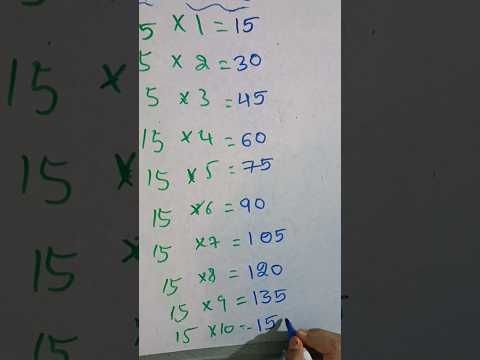 5 × 1 = 15
5 × 2 = 30
5 × 3 = 45
15 × 4 = 60
15 × 5 = 75
15 × 6 = 90
15 × 7 = 105
15 × 8 = 120
15 × 9 = 135
15 × 10 = 15